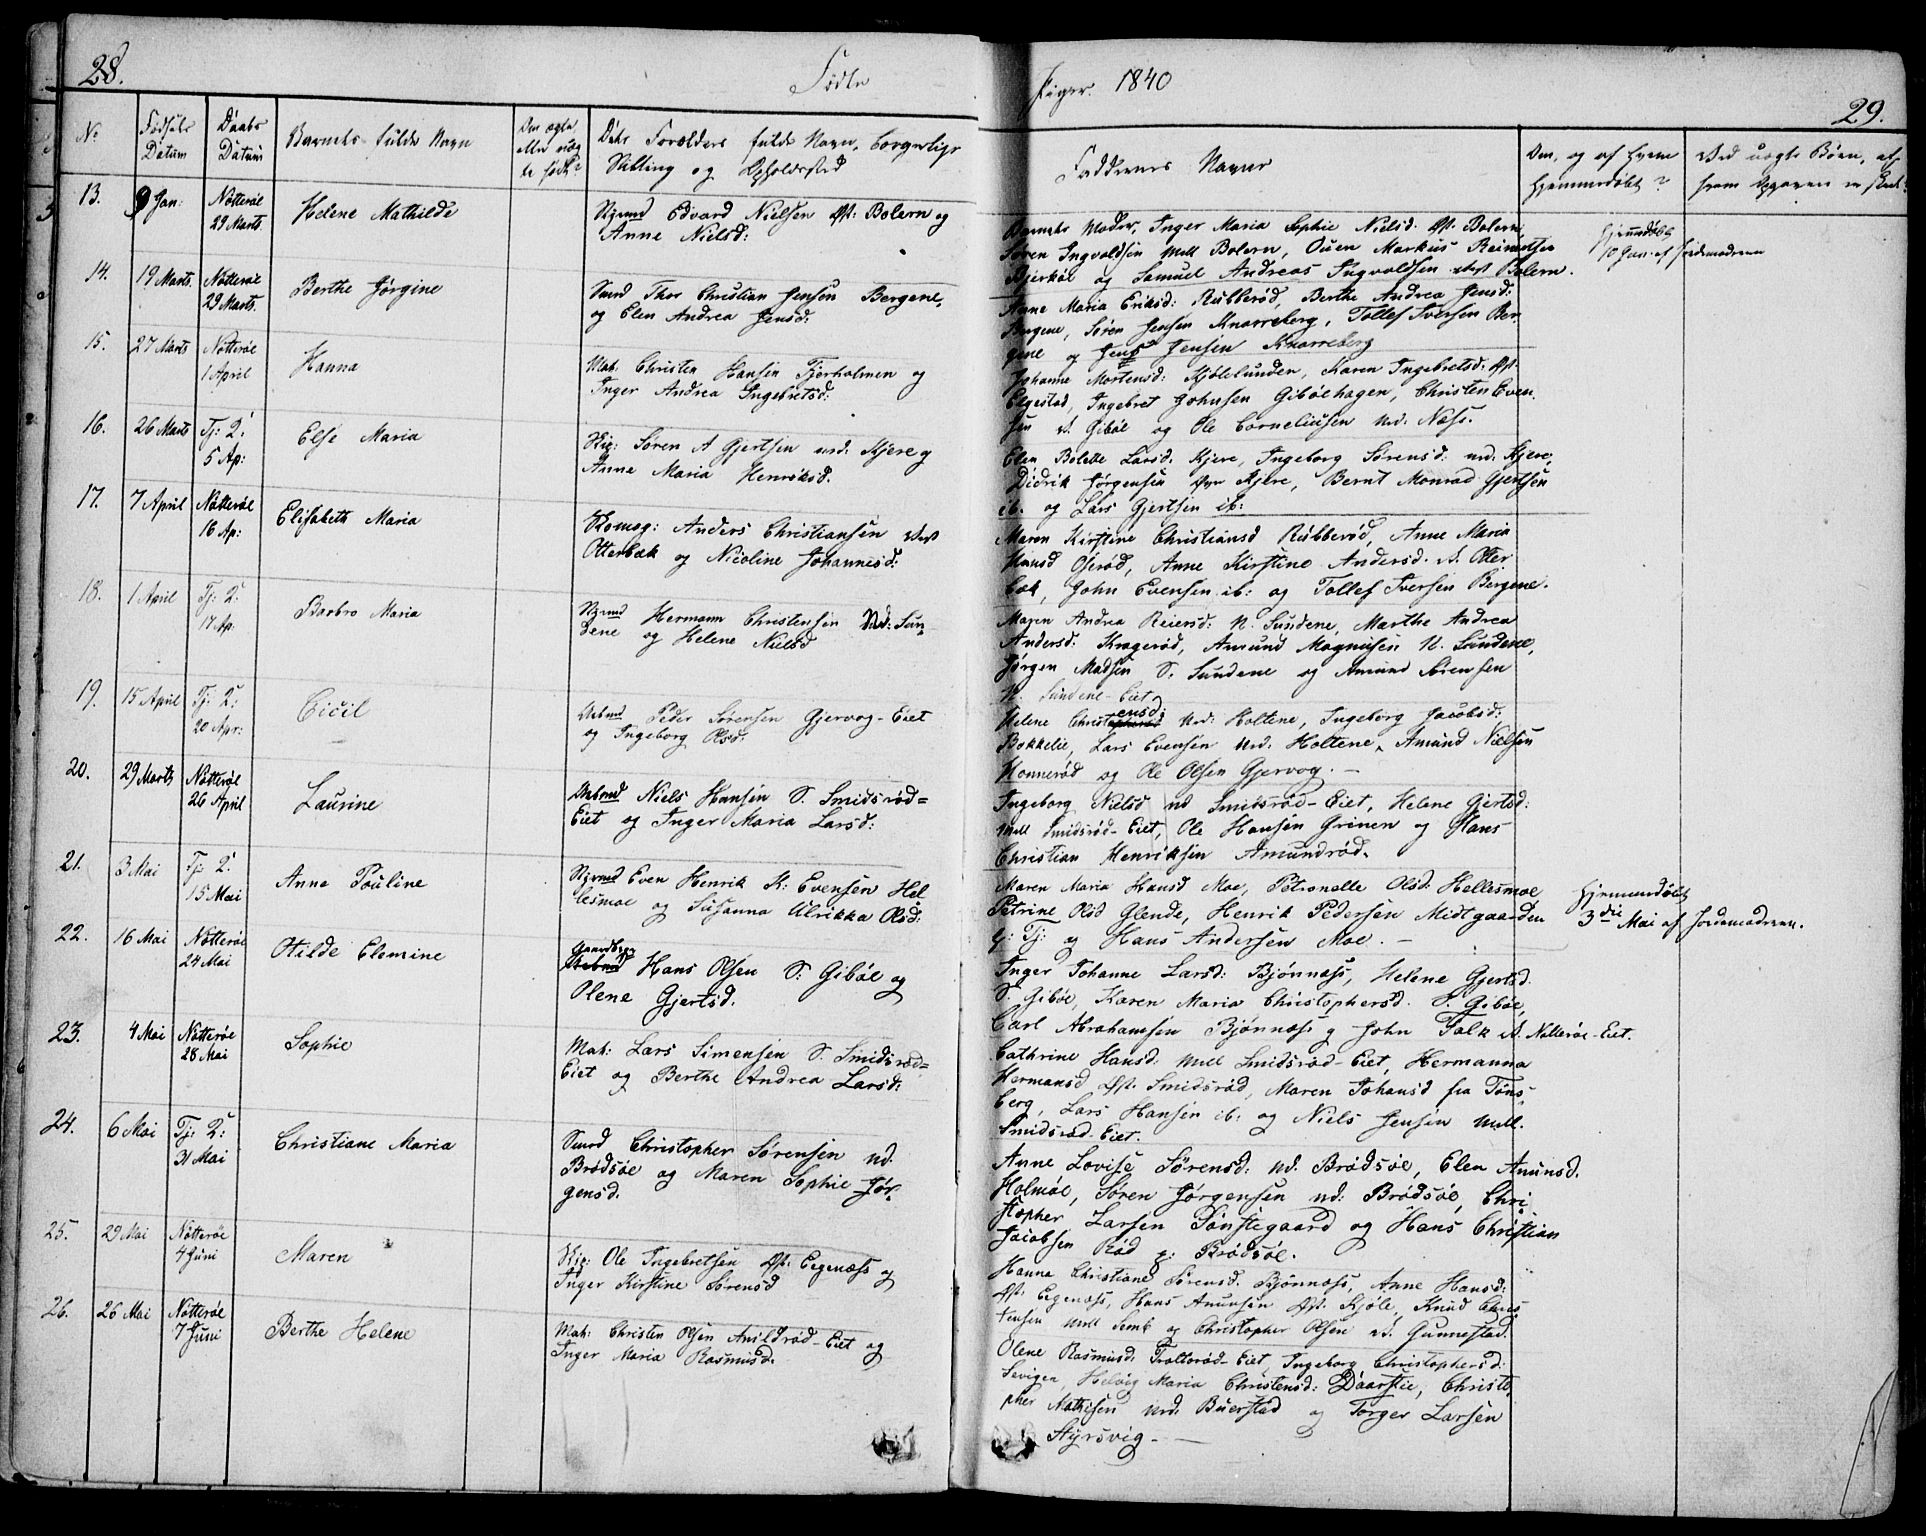 28.
Fødte
Piger. 1840
29.
No
Fødsels Datum
Daabs Datum
Barnets fulde Navn
Om ægte eller uægte født?
Dets Forældres fulde Navn, borgerlige
Stilling og Opholdssted
Faddernes Navne
Om, og af hvem
hjemmedøbt?
Ved uægte Børn, af
13.
9 Jan:
Nøtterøe
29 Marts.
Helene Mathilde
Edvard Nielsen Øst: Bolern og
Anne Nielsd:
Barnets Moder, Inger Maria Sophie Nielsd. Øst. Bolern,
Søren Ingvaldsen Mell Bolern, Ouen Markus Reinertsen
Bjerkøe og Samuel Andreas Ingvaldsen Vest Bolern.
Hjemmdøbt
10 Jan. af Jordmoderen
14.
19 Marts.
Nøtterøe
29 Marts.
Berthe Jørgine
Smed Thor Christian Jensen Bergene,
og Elen Andrea Jensd:
Anne Maria Eriksd: Rubberød, Berthe Andrea Jensd:
Bergene, Søren Jensen Knarreberg, Tollef Iversen Ber-
gene og Jens Jensen Knarreberg
15.
27 Marts
Nøtterøe
1 April
Hanna
Mat. Christen Hansen Fjerholmen og
Inger Andrea Ingebretsd:
Johanne Mortensd: Kjølelunden, Karen Ingebretsd. Øst.
Elgestad, Ingebret Johnsen Gibøehagen, Christen Even-
sen Gibøe og Ole Corneliusen Ned. Næss.
16.
26 Marts
Tj: 2:
5 Ap:
Else Maria
Søren A Gjertsen ned. Kjere og
Anne Maria Henriksd.
Elen Bolette Larsd. Kjere, Ingeborg Sørensd: ned. Kjere,
Didrik Jørgensen Kjere, Bernt Monrad Gjertsen
ib. og Lars Gjertsen ib:
17.
7 April
Nøtterøe
16 Ap:
Elisabeth Maria
Skomag: Anders Christiansen Vest
Otterbæk og Nicoline Johannesd:
Maren Kirstine Christiansd Rubberød, Anne Maria
Hansd Oserød, Anne Kirstine Andersd. Otter
bæk, John Evensen ib: og Tollef Iversen Bergene.
18.
1 April
Tj: 2:
17 Ap:
Barbro Maria
Hermann Christensen Ned: Sun-
dene og Helene Nielsd
Maren Andrea Reiersd: N. Sundene, Marthe Andrea
Andersd. Kragerød, Amund Magnusen N. Sundene,
Jørgen Madsen S. Sundene og Amund Sørensen
N. Sundene-Eiet
19.
15 April
Tj: 2:
20 Apr:
Cicil
Peder Sørensen Gjervog-Eiet
og Ingeborg Olsd:
Helene Christensd: Ned: Holtene, Ingeborg Jacobsd:
Bakkelie, Lars Evensen Ned. Holtene, Amund Nielsen
Honnerød og Ole Olsen Gjervog.
20.
29 Marts
Nøtterøe
26 April
Laurine
Niels Hansen S. Smidsrød=
Eiet og Inger Maria Larsd:
Ingeborg Nielsd nd Smidsrød-Eiet, Helene Gjertsd:
Mell Smidsrød-Eiet, Ole Hansen Grinen og Hans
Christian Henriksen Amundrød.
21.
3 Mai
Tj: 2:
15 Mai
Anne Pouline
Even Henrik K: Evensen Hel
lesmoe og Susanna Ulrikka Olsd:
Maren Maria Hansd Moe, Petronelle Olsd. Hellesmoe
Petrine Olsd Glende, Henrik Pedersen Midtgaarden
G: Tj: og Hans Andersen Moe.
Hjemmedøbt
3die Mai af Jordemoderen.
22.
16 Mai
Nøtterøe
24 Mai
Othilde Elomine
Hans Olsen S. Gibøe og
Olene Gjertsd.
Inger Johanne Larsd: Bjønnæss, Helene Gjertsd.
S. Gibøe, Karen Maria Christophersd. S. Gibøe,
Carl Abrahamsen Bjønnæss og John Falk Nøtterøe-Eiet.
23.
4 Mai
Nøtterøe
28 Mai
Sophie
Mat: Lars Simensen S. Smidsrød=
Eiet og Berthe Andrea Larsd:
Cathrine Hansd. Mell Smidsrød-Eiet, Hermanna
Hermansd Øst. Smidsrød, Maren Johansd fra Tøns-
berg, Lars Hansen ib: og Niels Jensen Mell.
Smidsrød-Eiet.
24.
6 Mai
Tj: 2:
31 Mai
Christiane Maria
Smed Christopher Sørensen nd.
Brødsøe og Maren Sophie Jør-
gensd.
Anne Lovise Sørensd: nd. Brødsøe, Elen Anunsd.
Holmøe, Søren Jørgensen nd: Brødsøe, Chri-
stopher Larsen Sønstegaard og Hans Christian
Jacobsen Rød p: Brødsøe.
25.
29 Mai
Nøtterøe
4 Juni
Maren
Ole Ingebretsen Øst: Eegenæss og
Inger Kirstine Sørensd
Hanna Christiane Sørensd. Bjønnæss, Anne Hansd:
Øst. Eegenæss, Hans Anunsen Øst. Kjøle, Knud Chris-
tensen Mell Semb og Christopher Olsen Gunnestad.
26.
26 Mai
Nøtterøe
7 Juni
Berthe Helene
Mat: Christen Olsen Anildrød-Eiet og
Inger Maria Rasmusd.
Olene Rasmusd. Trollerød-Eiet, Ingeborg Christophersd:
Sevigen, Helvig Maria Christensd: Daarstie, Christo-
pher Mathisen Ned. Buerstad og Torger Larsen
Styrsvig.